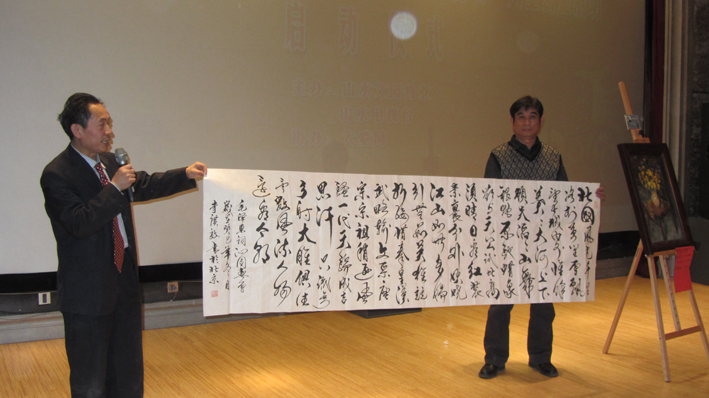 启动仪式
北國風光千里
冰封万里雪飘
望长城内外惟余
莽莽大河上下
顿失滔滔山舞
银蛇原驰蜡象
欲与天公试比高
须晴日看红装
素裹分外妖娆
江山如此多娇
引无数英雄竞
折腰惜秦皇汉
武略输文采唐
宗宋祖稍逊风
骚一代天骄成吉
思汗只识弯
弓射大雕俱往
矣数风流人物
还看今朝
毛泽东词沁园春雪
癸巳年月
李书于北京